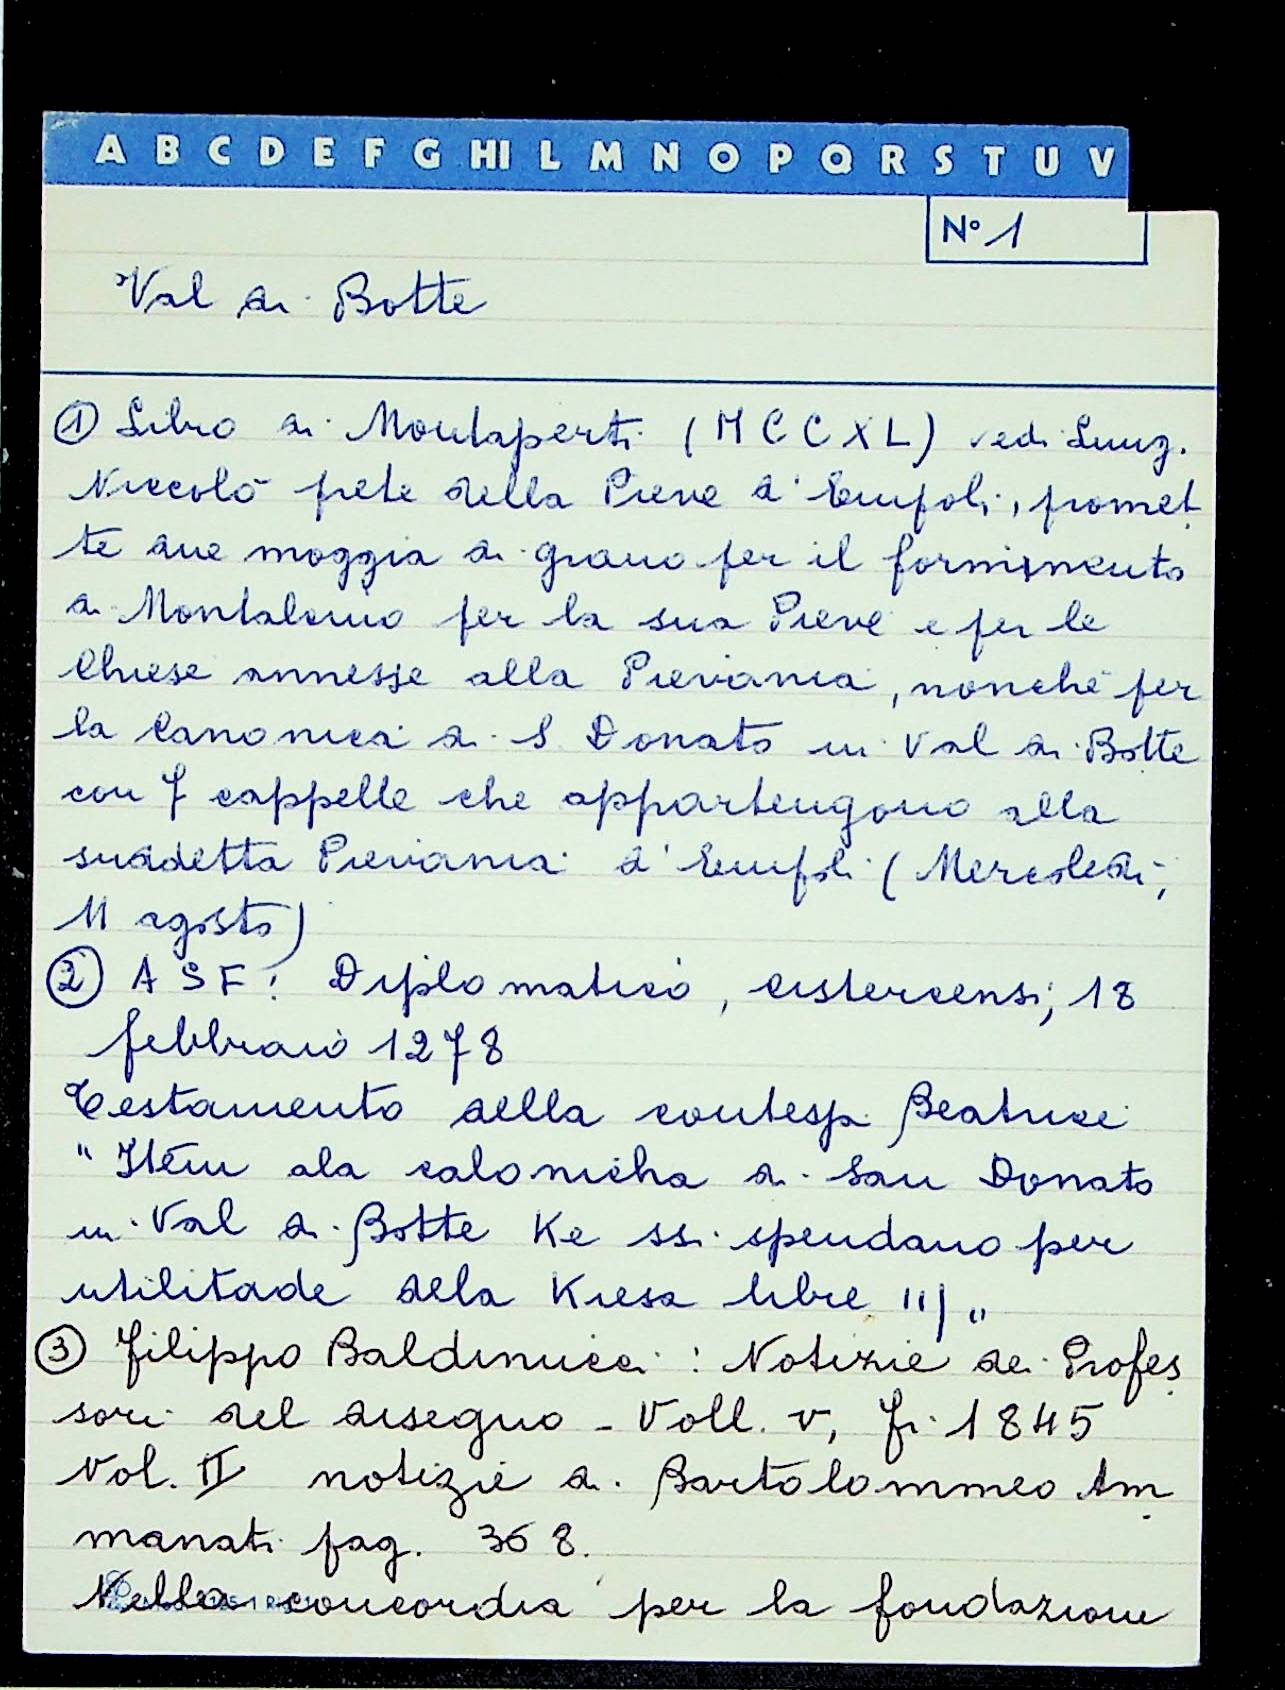 A B C D E F G HI L M N O P Q R S T U V
N° 1
Val di Botte
① Libro di Montaperti (MCCXL) vedi
Niccolò pete della Pieve d'Empoli, promet
te due moggia di grano per il fornimento
di Montalcino per la sua Pieve e per le
Chiese annesse alla Pievania, nonché per
la Canonica di S. Donato in Val di Botte
con 7 cappelle che appartengono alla
suddetta Pievania d'Empoli (Mercoledì,
11 agosto)
② ASF: Diplomatico, cistercensi, 18
febbraio 1278
Testamento della contessa Beatrice
"Item ala calonicha di San Donato
in Val di Botte Ke ssi spendano per
utilitade dela Kiesa libre iij"
③ Filippo Baldinucci: Notizie dei Profes
sori del disegno - Voll. V, Fi 1845
Vol. II notizie di Bartolommeo Am
manati pag. 368.
Nella concordia per la fondazione